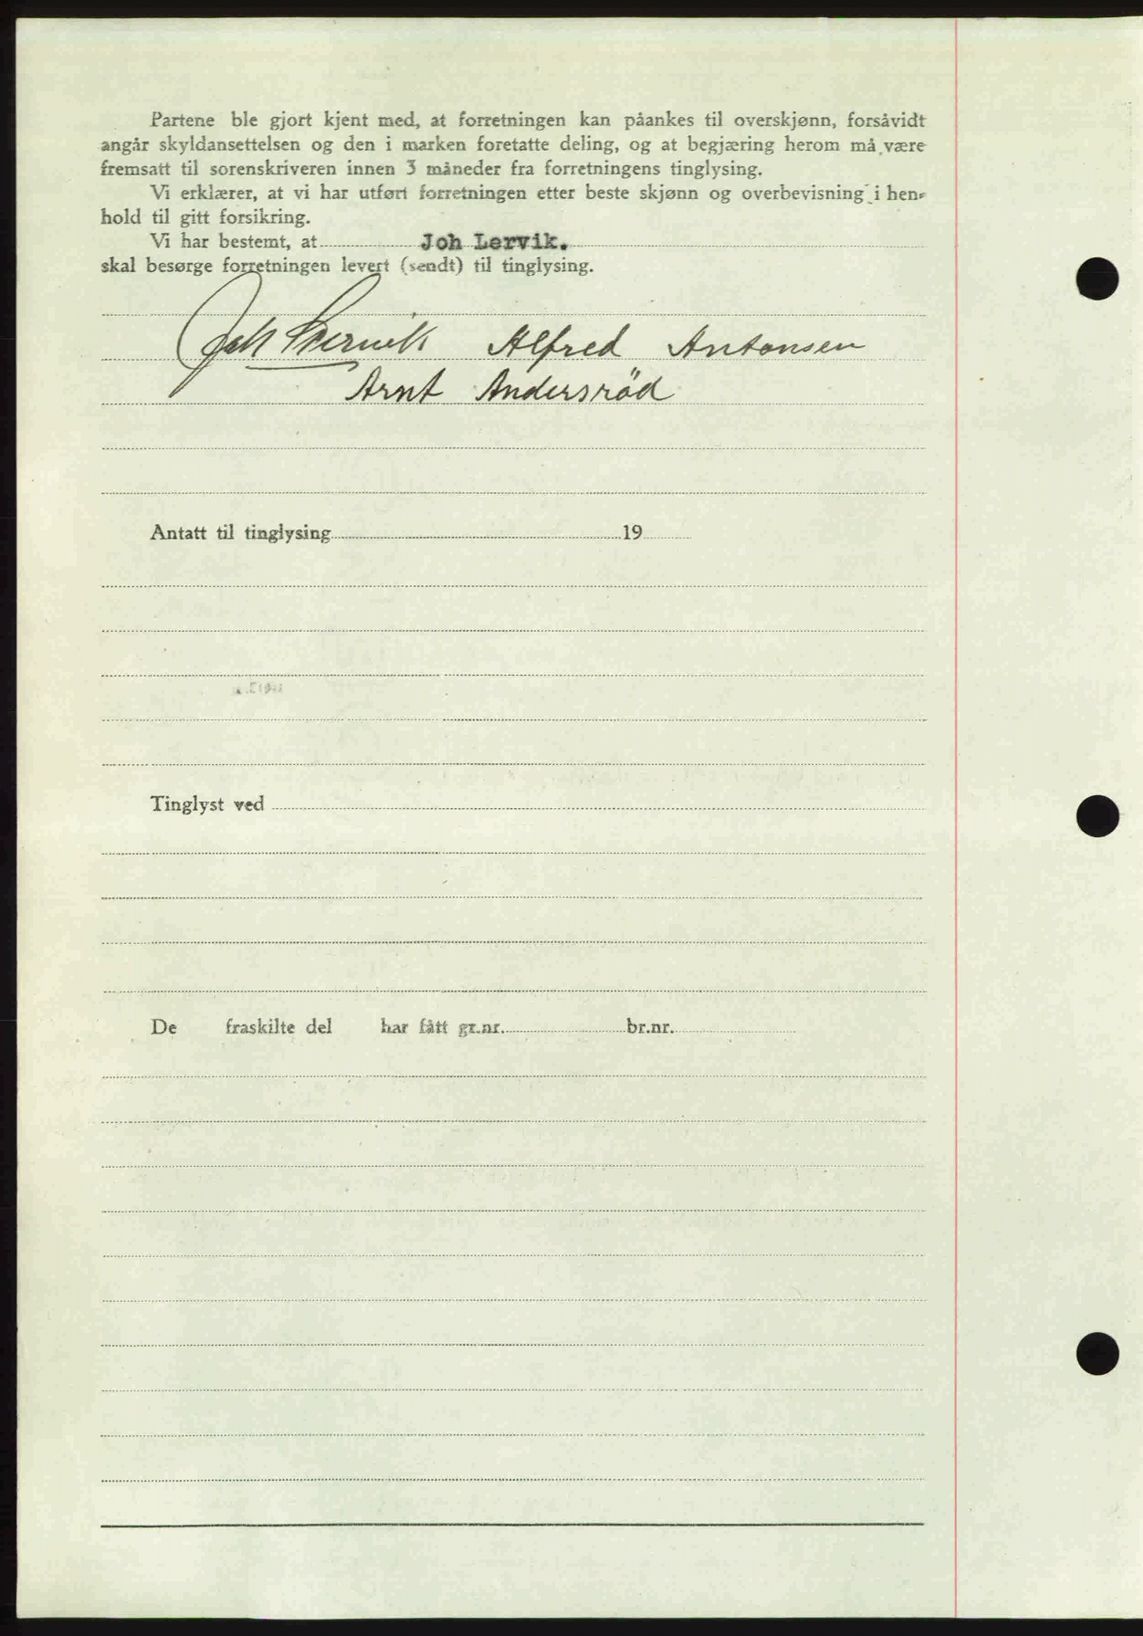 Partene ble gjort kjent med, at forretningen kan påankes til overskjønn, forsåvidt
angår skyldansettelsen og den i marken foretatte deling, og at begjæring herom må være
fremsatt til sorenskriveren innen 3 måneder fra forretningens tinglysing.
Vi erklærer, at vi har utført forretningen etter beste skjønn og overbevisning i hen-
hold til gitt forsikring.
Vi har bestemt, at Joh Lervik.
skal besørge forretningen levert (sendt) til tinglysing.
Joh Lervik Alfred Antonsen
Arnt Andersröd
Antatt til tinglysing 19
Tinglyst ved
De fraskilte del har fått gr.nr. br.nr.